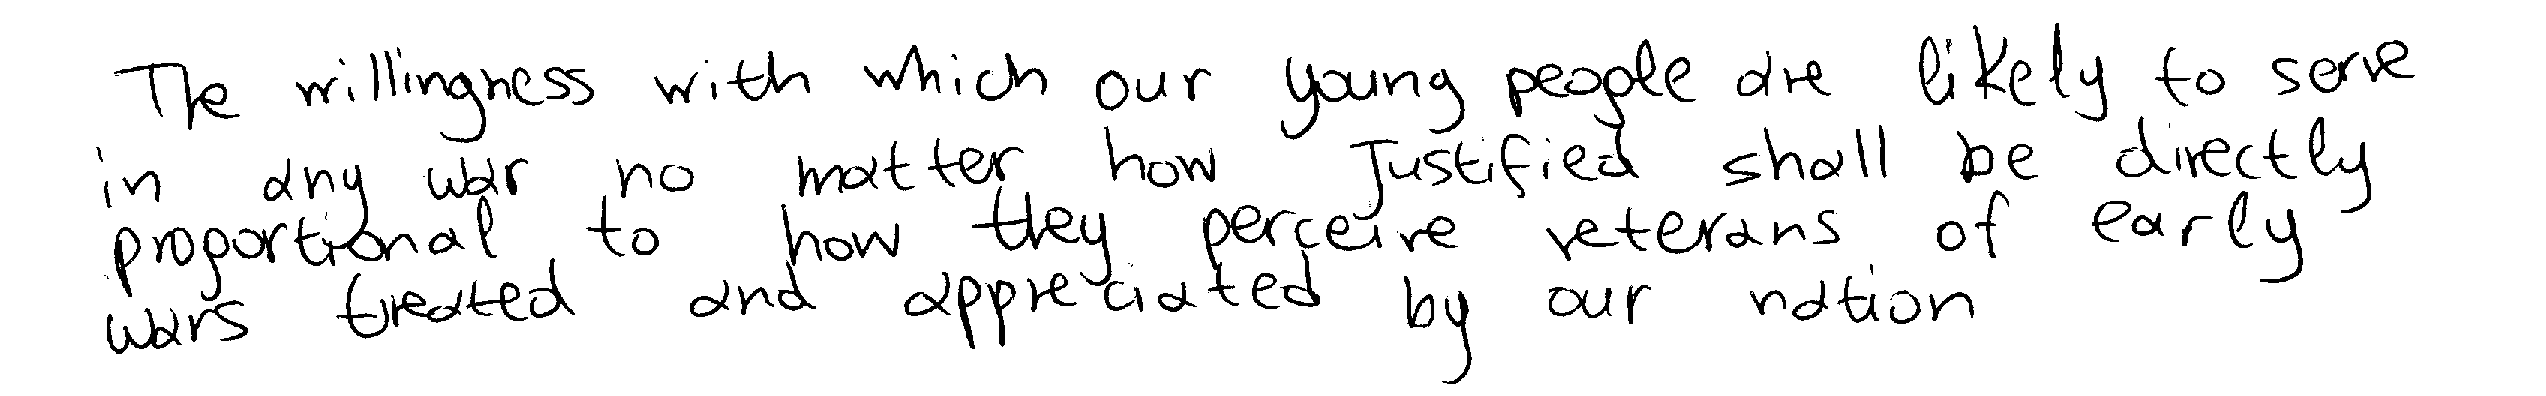 The willingness with which our young people are likely to serve
in any war no matter how Justified shall be directly
proportional to how they perceive veterans of early
wars treated and appreciated by our nation